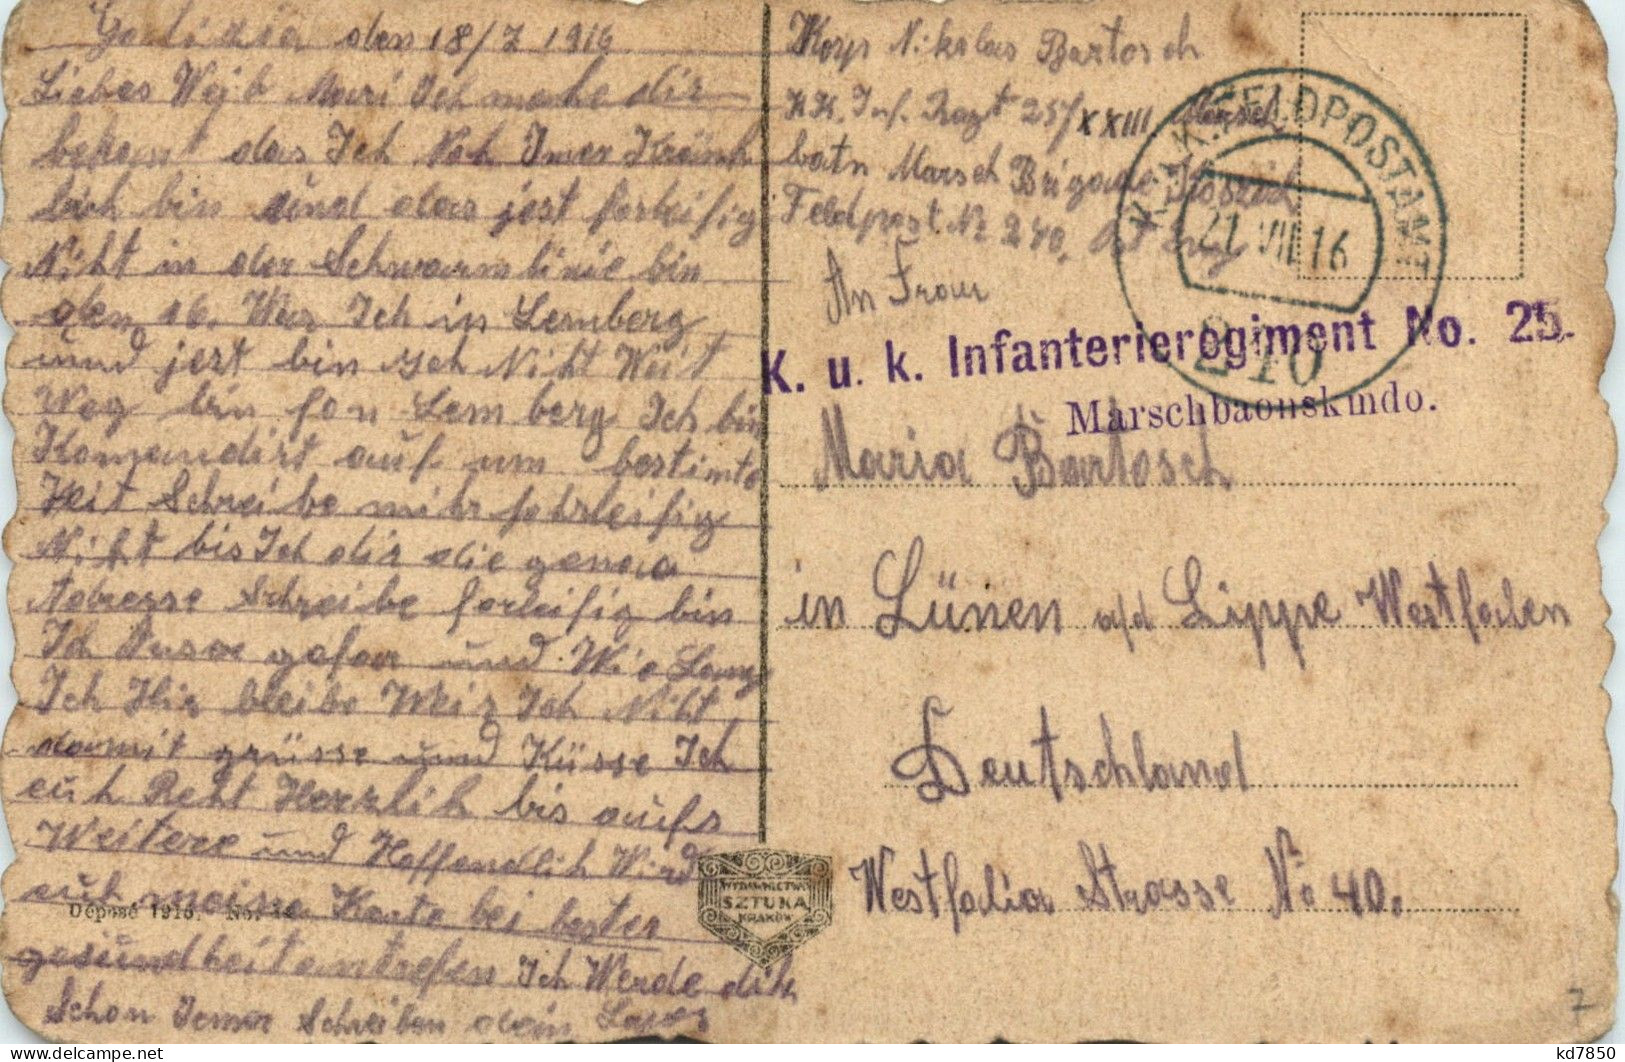 Galizia den 18/7 1916
Liebes Weib Mari Ich mache dir
bekant das Ich Noh Imer Kränk
lich bin und das jest forleifig
Niht in der Schwarmlinie bin
den 16. War Ich in Lemberg
und jest bin Ich Niht Weit
Weg bin fon Lemberg Ich bin
Komandirt auf um bestimte
Zeit Schreibe mihr fohrleifig
Niht bis Ich dir die genaa
Adresse Schreibe forleifig bin
Ich Ausae gefar und Wie Lang
Ich Hir bleibe Weis Ich Niht
damit grüsse und Küsse Ich
euh Reht Herzlih bis aufs
Weitere und Hoffendlih Wird
euh meine Karte bei bester
gesundheit antrefen Ich Werde dih
Schon Immer Schreiben dein
Deposé 1916. No.
WYDAWNICTWO
SZTUKA
KRAKÓW
Korp Nikolas Bartosch
K.K. Inf. Ragt 25/XXIII Marsch
batn Marsch Brigade
Feldpost. Nr 240,
K.u.K. FELDPOSTAMT
21 VII 16
240
An Frau
K. u. k. Infanterieregiment No. 25.
Marschbaonskmdo.
Maria Bartosch
in Lünen a/d Lippe Westfalen
Deutschland
Westfalia Strasse No 40.
7
kd7850